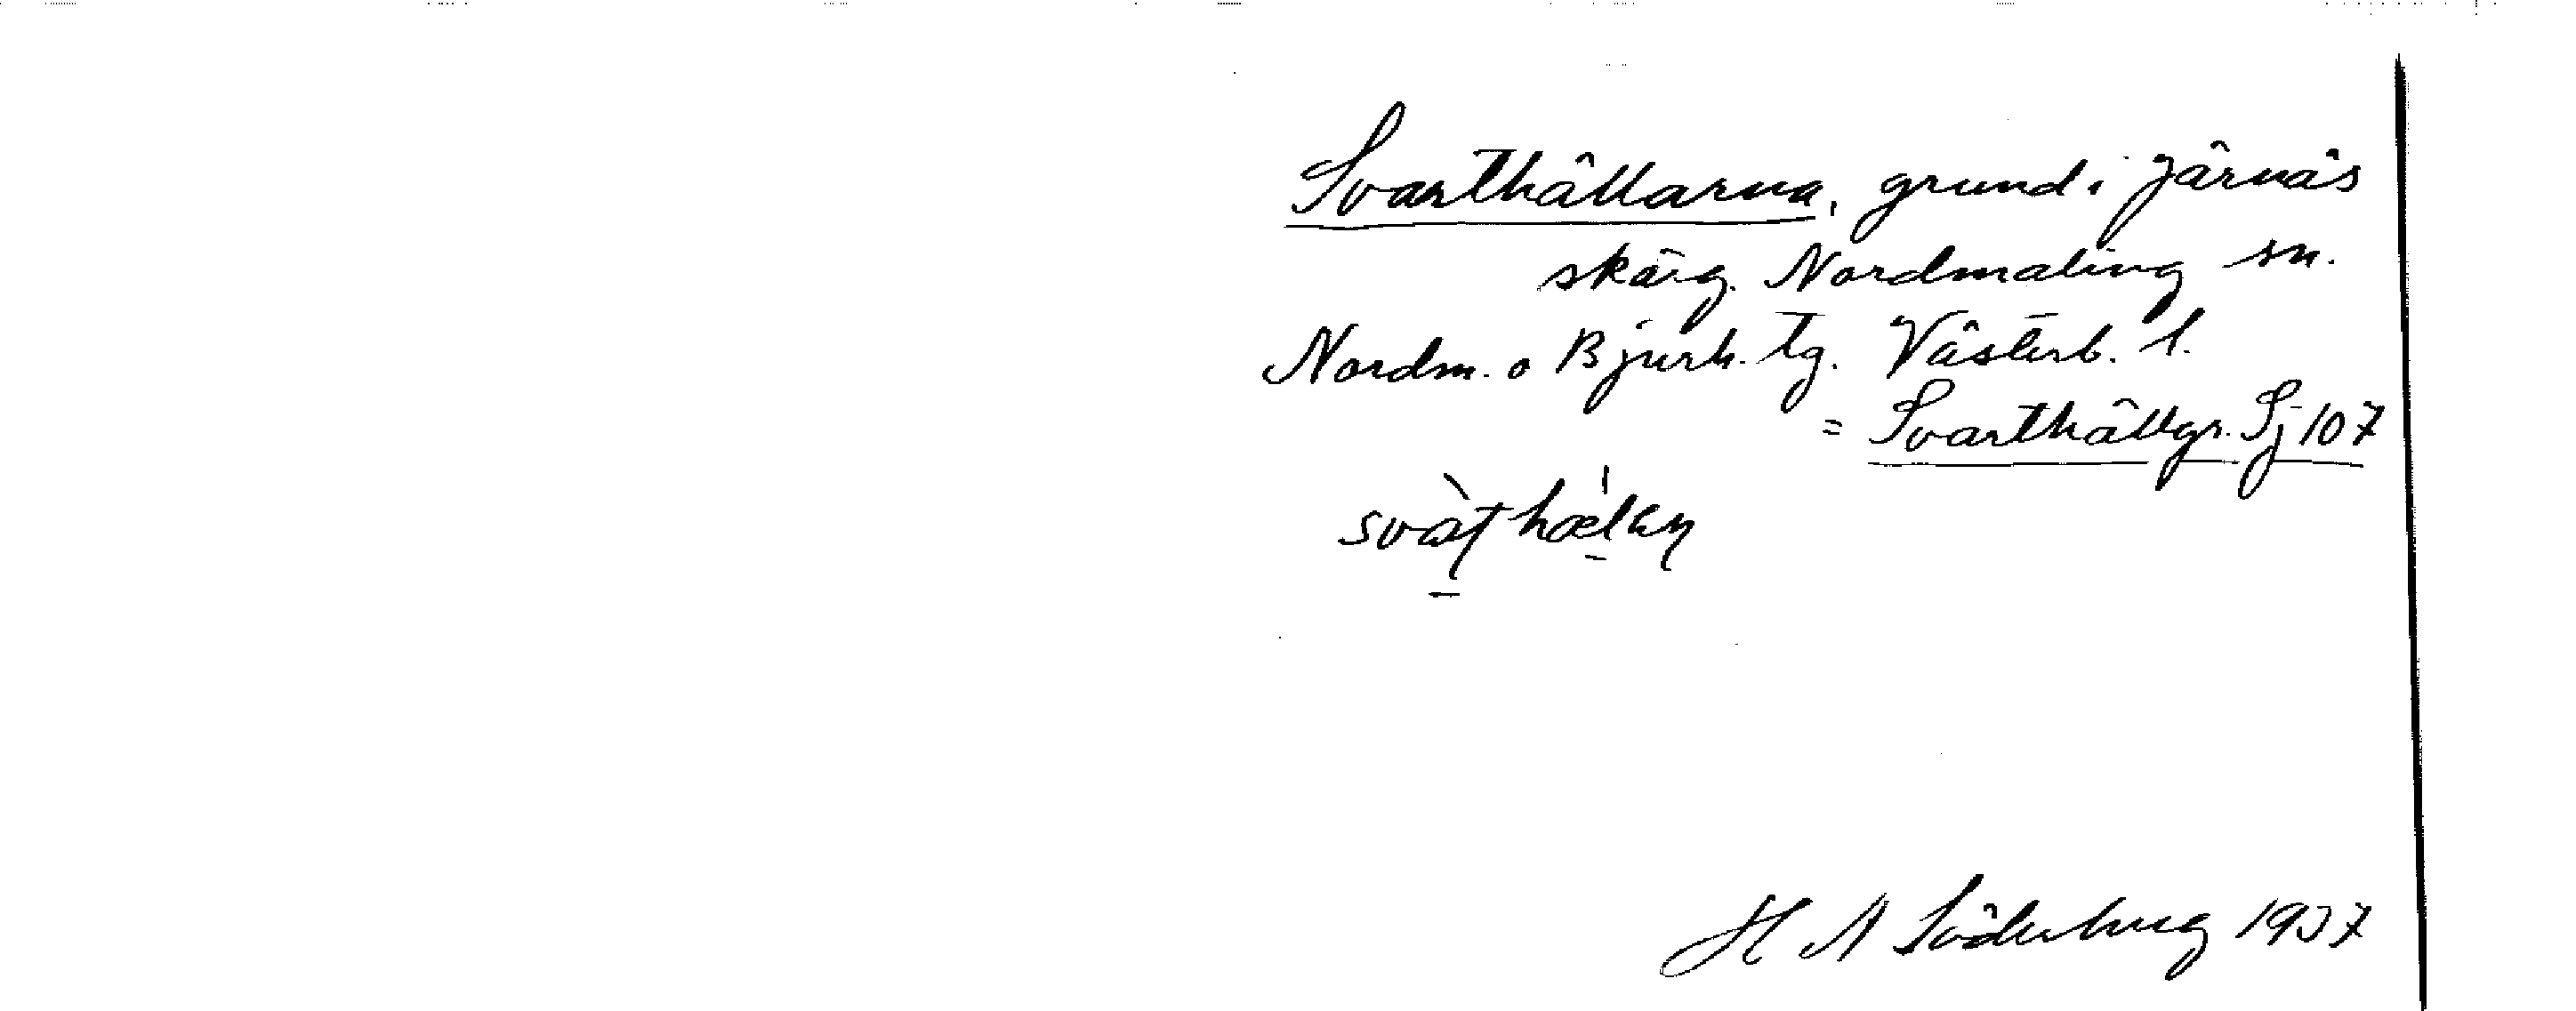 Svarthällarna, grund i Järnäs
skärg. Nordmaling sn.
Nordm. o Bjurh. tg. Västerb. l.
= Svarthällgr. Sj 107
svàt hæ̀lan
H A Söderberg 1937